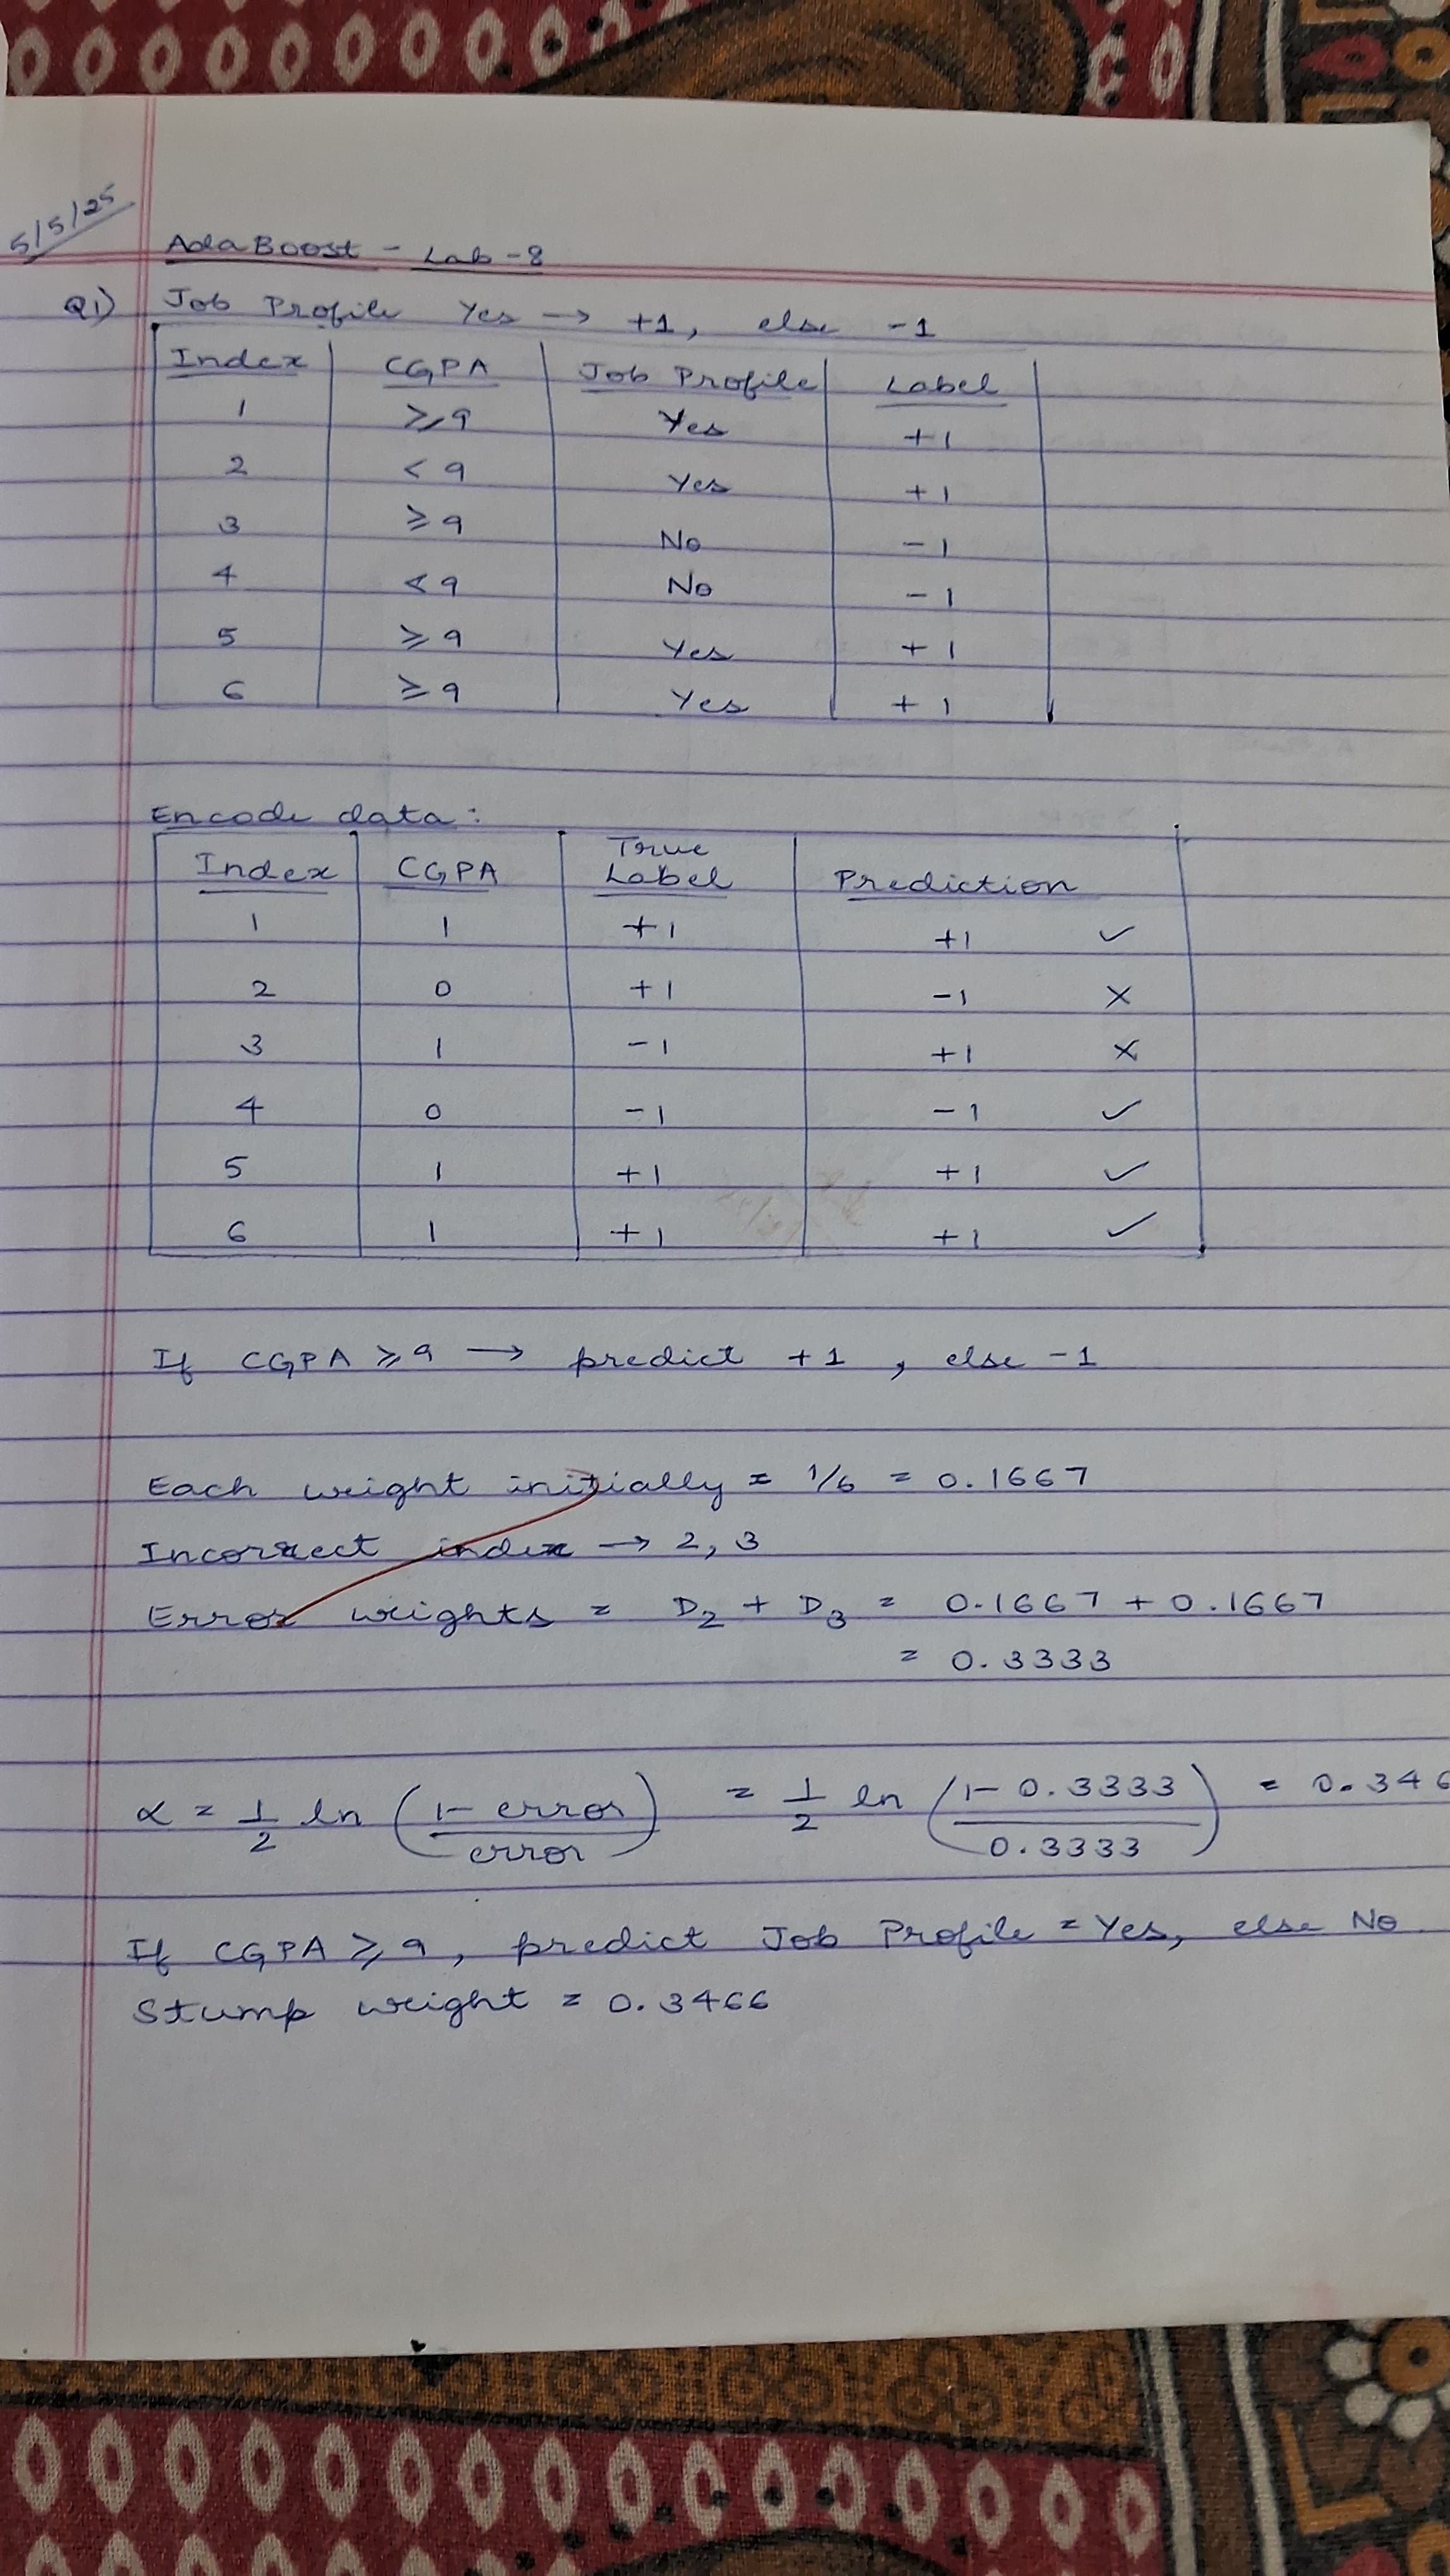 5/5/25
AdaBoost - Lab -8
Q1) Job Profile Yes → +1, else -1
Index CGPA Job Profile Label
1 ≥9 Yes +1
2 <9 Yes +1
3 ≥9 No -1
4 <9 No -1
5 ≥9 Yes +1
6 ≥9 Yes +1
Encode data:
Index CGPA True Label Prediction
1 1 +1 +1 ✓
2 0 +1 -1 ×
3 1 -1 +1 ×
4 0 -1 -1 ✓
5 1 +1 +1 ✓
6 1 +1 +1 ✓
If CGPA ≥9 → predict +1, else -1
Each weight initially = 1/6 = 0.1667
Incorrect index → 2, 3
Error weights = D₂ + D₃ = 0.1667 + 0.1667
= 0.3333
α = 1/2 ln (1- error / error) = 1/2 ln (1- 0.3333 / 0.3333) = 0.346
If CGPA ≥9, predict Job Profile = Yes, else No
Stump weight = 0.3466